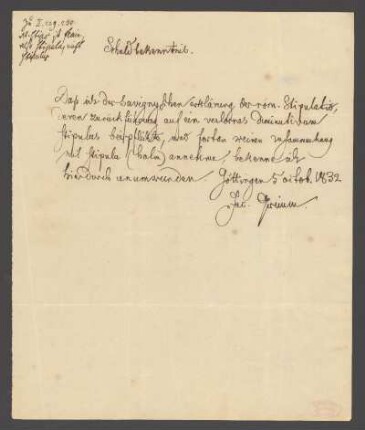 Schuldbekenntnis.
Daß ich der Savignyschen erklärung der röm. Stipulatio,
deren zurückführung auf ein verlornes Diminutivum
stipulus beipflichte, und fortan keinen zusammenhang
mit stipula (halm) annehme, bekenne ich
hierdurch unumwunden. Göttingen 5 octob. 1832
Jac. Grimm